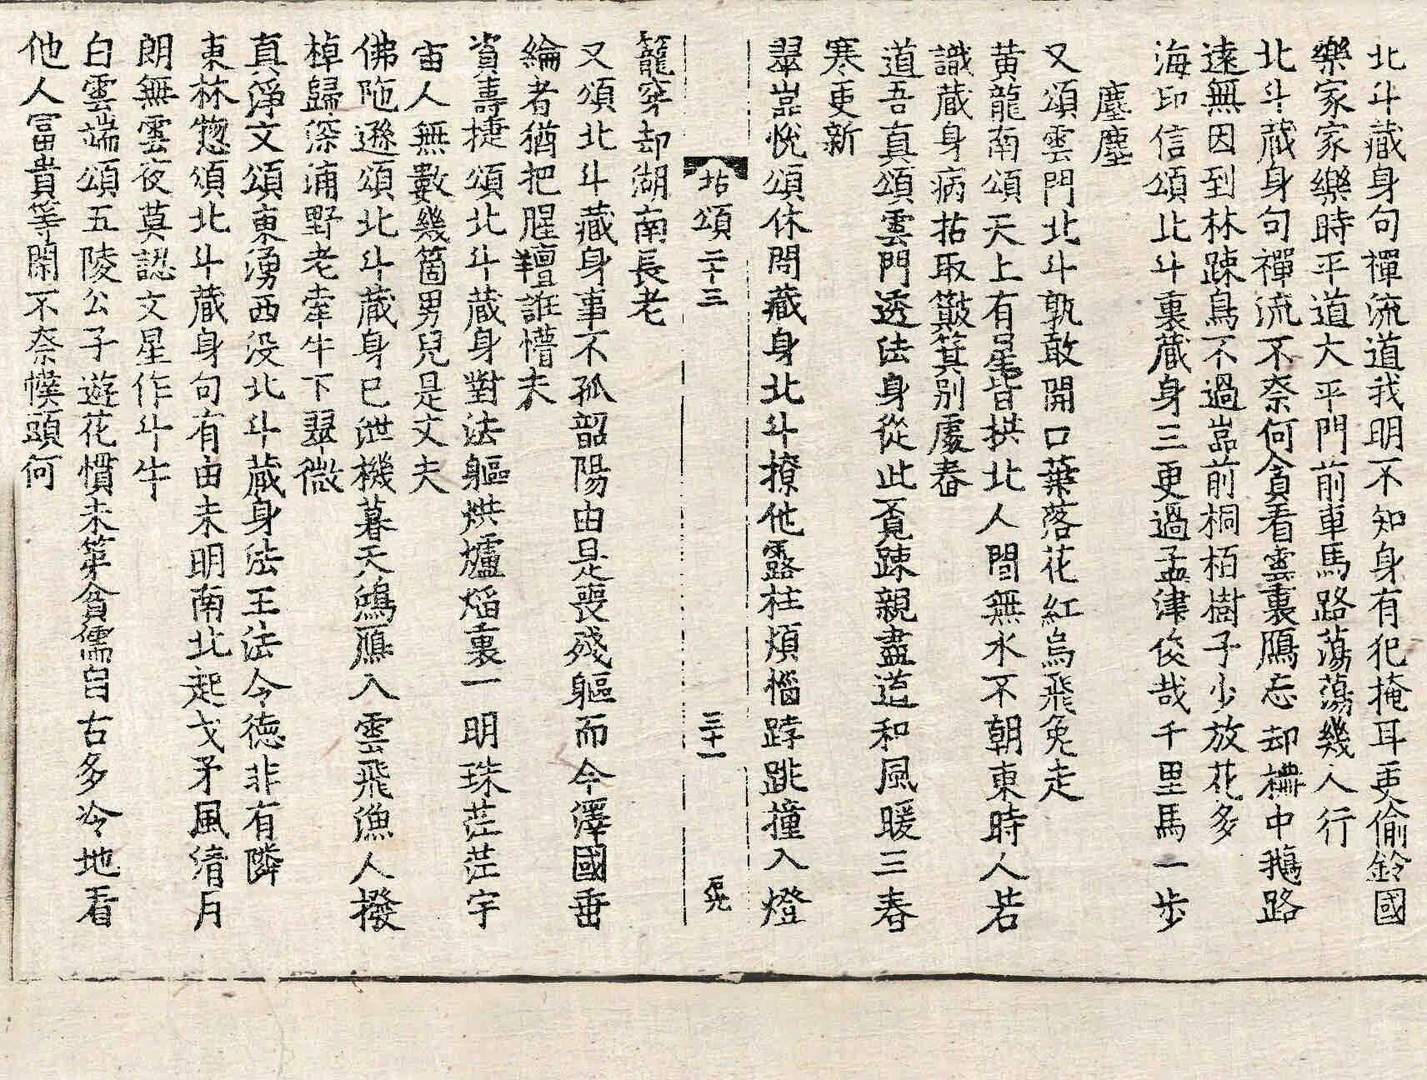 北斗藏身句禪流道我明不知身有犯掩耳更偷鈴國
樂家家樂時平道大平門前車馬路蕩蕩幾人行
北斗藏身句禪流不奈何貪看雲裏鴈忘却槽中鵝路
遠無因到林踈鳥不過嵓前桐栢樹子少放花多
海印信頌北斗裏藏身三更過孟津俊哉千里馬一步
塵塵
又頌雲門北斗孰敢開口葉落花紅烏飛兔走
黄龍南頌天上有星皆拱北人間無水不朝東時人若
識藏身病拈取簸箕别處舂
道吾真頌雲門透法身從此覓踈親盡道和風暖三春
寒更新
翠嵓悅頌休問藏身北斗撩他露柱煩惱踍跳撞入燈
拈頌二十三
三十一
籠穿却湖南長老
又頌北斗藏身事不孤韶陽由是喪殘軀而今澤國垂
綸者猶把腥羶誑懵夫
資壽捷頌北斗藏身對法軀烘爐焰裏一明珠茫茫宇
宙人無數幾箇男兒是丈夫
佛陁遜頌北斗藏身已泄機暮天鴻鴈入雲飛漁人撥
棹歸深浦野老牽牛下翠微
真淨文頌東湧西没北斗藏身法王法令德非有隣
東林惣頌北斗藏身句有由未明南北起戈矛風清月
朗無雲夜莫認文星作斗牛
白雲端頌五陵公子遊花慣未第貧儒自古多冷地看
他人富貴等閑不奈幞頭何